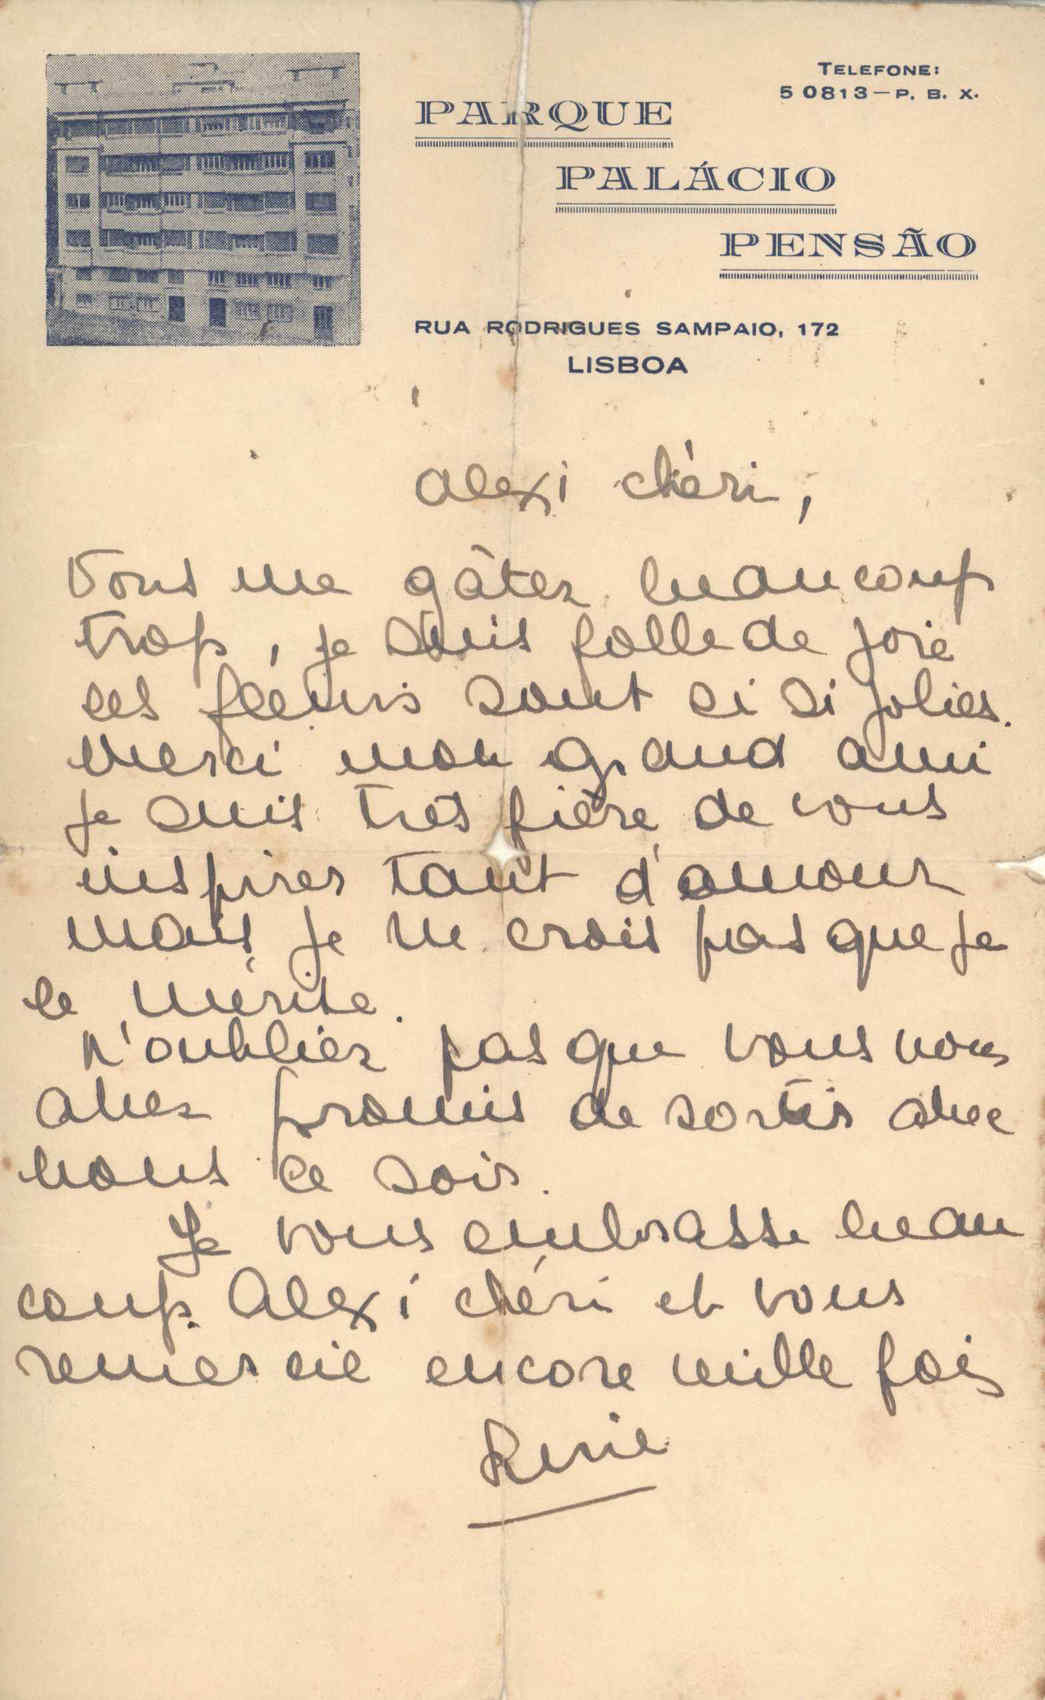 TELEFONE:
5 0813 — P. B. X.
PARQUE
PALÁCIO
PENSÃO
RUA RODRIGUES SAMPAIO, 172
LISBOA
Alexi chéri,
Vous me gâtez beaucoup
trop, je suis folle de joie
ces fleurs sont si si jolies.
Merci mon grand ami
je suis très fière de vous
inspirer tant d'amour
mais je ne crois pas que je
le mérite.
N'oubliez pas que vous nous
avez promis de sortir avec
nous ce soir.
Je vous embrasse beau
coup Alexi chéri et vous
remercie encore mille fois